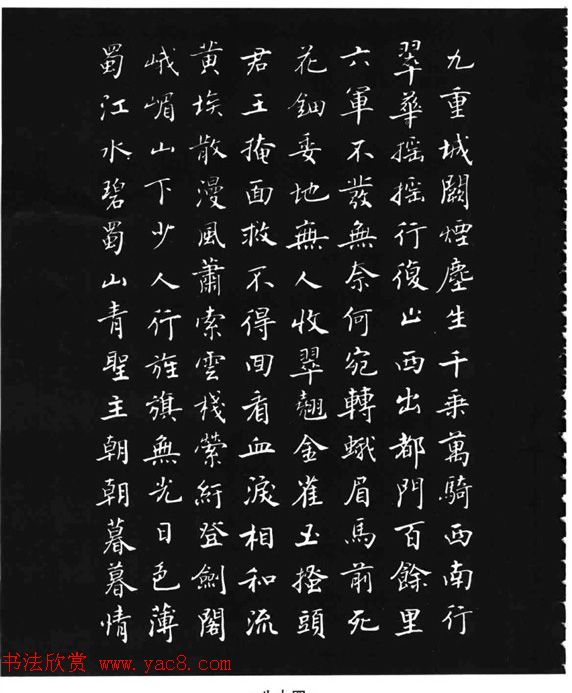 九重城闕煙塵生千乘萬騎西南行
翠華搖搖行復止西出都門百餘里
六軍不發無奈何宛轉蛾眉馬前死
花鈿委地無人收翠翹金雀玉搔頭
君王掩面救不得回看血淚相和流
黄埃散漫風蕭索雲棧縈紆登劍閣
峨嵋山下少人行旌旗無光日色薄
蜀江水碧蜀山青聖主朝朝暮暮情
书法欣赏 www.yac8.com